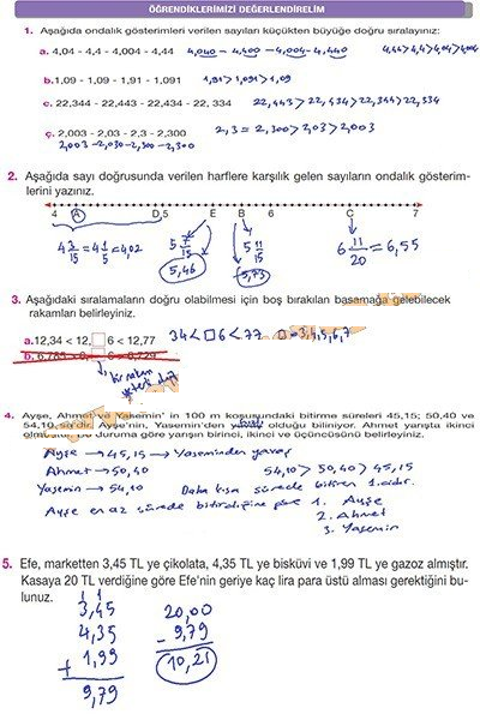 ÖĞRENDİKLERİMİZİ DEĞERLENDİRELİM
1. Aşağıda ondalık gösterimleri verilen sayıları küçükten büyüğe doğru sıralayınız:
a. 4,04 - 4,4 - 4,004 - 4,44 4,040 - 4,400 - 4,004 - 4,440 4,44>4,4>4,04>4,004
b. 1,09 - 1,09 - 1,91 - 1,091 1,91 > 1,091 > 1,09
c. 22,344 - 22,443 - 22,434 - 22, 334 22,443 > 22,434 > 22,344 > 22,334
ç. 2,003 - 2,03 - 2,3 - 2,300 2,3 = 2,300 > 2,03 > 2,003
2,003 - 2,030 - 2,300 - 2,300
2. Aşağıda sayı doğrusunda verilen harflere karşılık gelen sayıların ondalık gösterim-
lerini yazınız.
4 A D 5 E B 6 C 7
4 3/15 = 4 1/5 = 4,02 5 7/15 5 11/15 6 11/20 = 6,55
5,46 5,73
3. Aşağıdaki sıralamaların doğru olabilmesi için boş bırakılan basamağa gelebilecek
rakamları belirleyiniz.
a. 12,34 < 12,□ 6 < 12,77 34 < □6 < 77 □=3,4,5,6,7
b. 6,785 > 6, 6 > 6,729
bir rakam
4. Ayşe, Ahmet ve Yasemin' in 100 m koşusundaki bitirme süreleri 45,15; 50,40 ve
54,10 sn'dir. Ayşe'nin, Yasemin'den olduğu biliniyor. Ahmet yarışta ikinci
duruma göre yarışın birinci, ikinci ve üçüncüsünü belirleyiniz.
Ayşe → 45,15 → Yaseminden yavaş
Ahmet → 50,40 54,10 > 50,40 > 45,15
Yasemin → 54,10 Daha kısa sürede bitiren 1.dir.
Ayşe en az sürede bitirdiğine göre 1. Ayşe
2. Ahmet
3. Yasemin
5. Efe, marketten 3,45 TL ye çikolata, 4,35 TL ye bisküvi ve 1,99 TL ye gazoz almıştır.
Kasaya 20 TL verdiğine göre Efe'nin geriye kaç lira para üstü alması gerektiğini bu-
lunuz.
1 1
3,45 20,00
4,35 - 9,79
+ 1,99 10,21
9,79